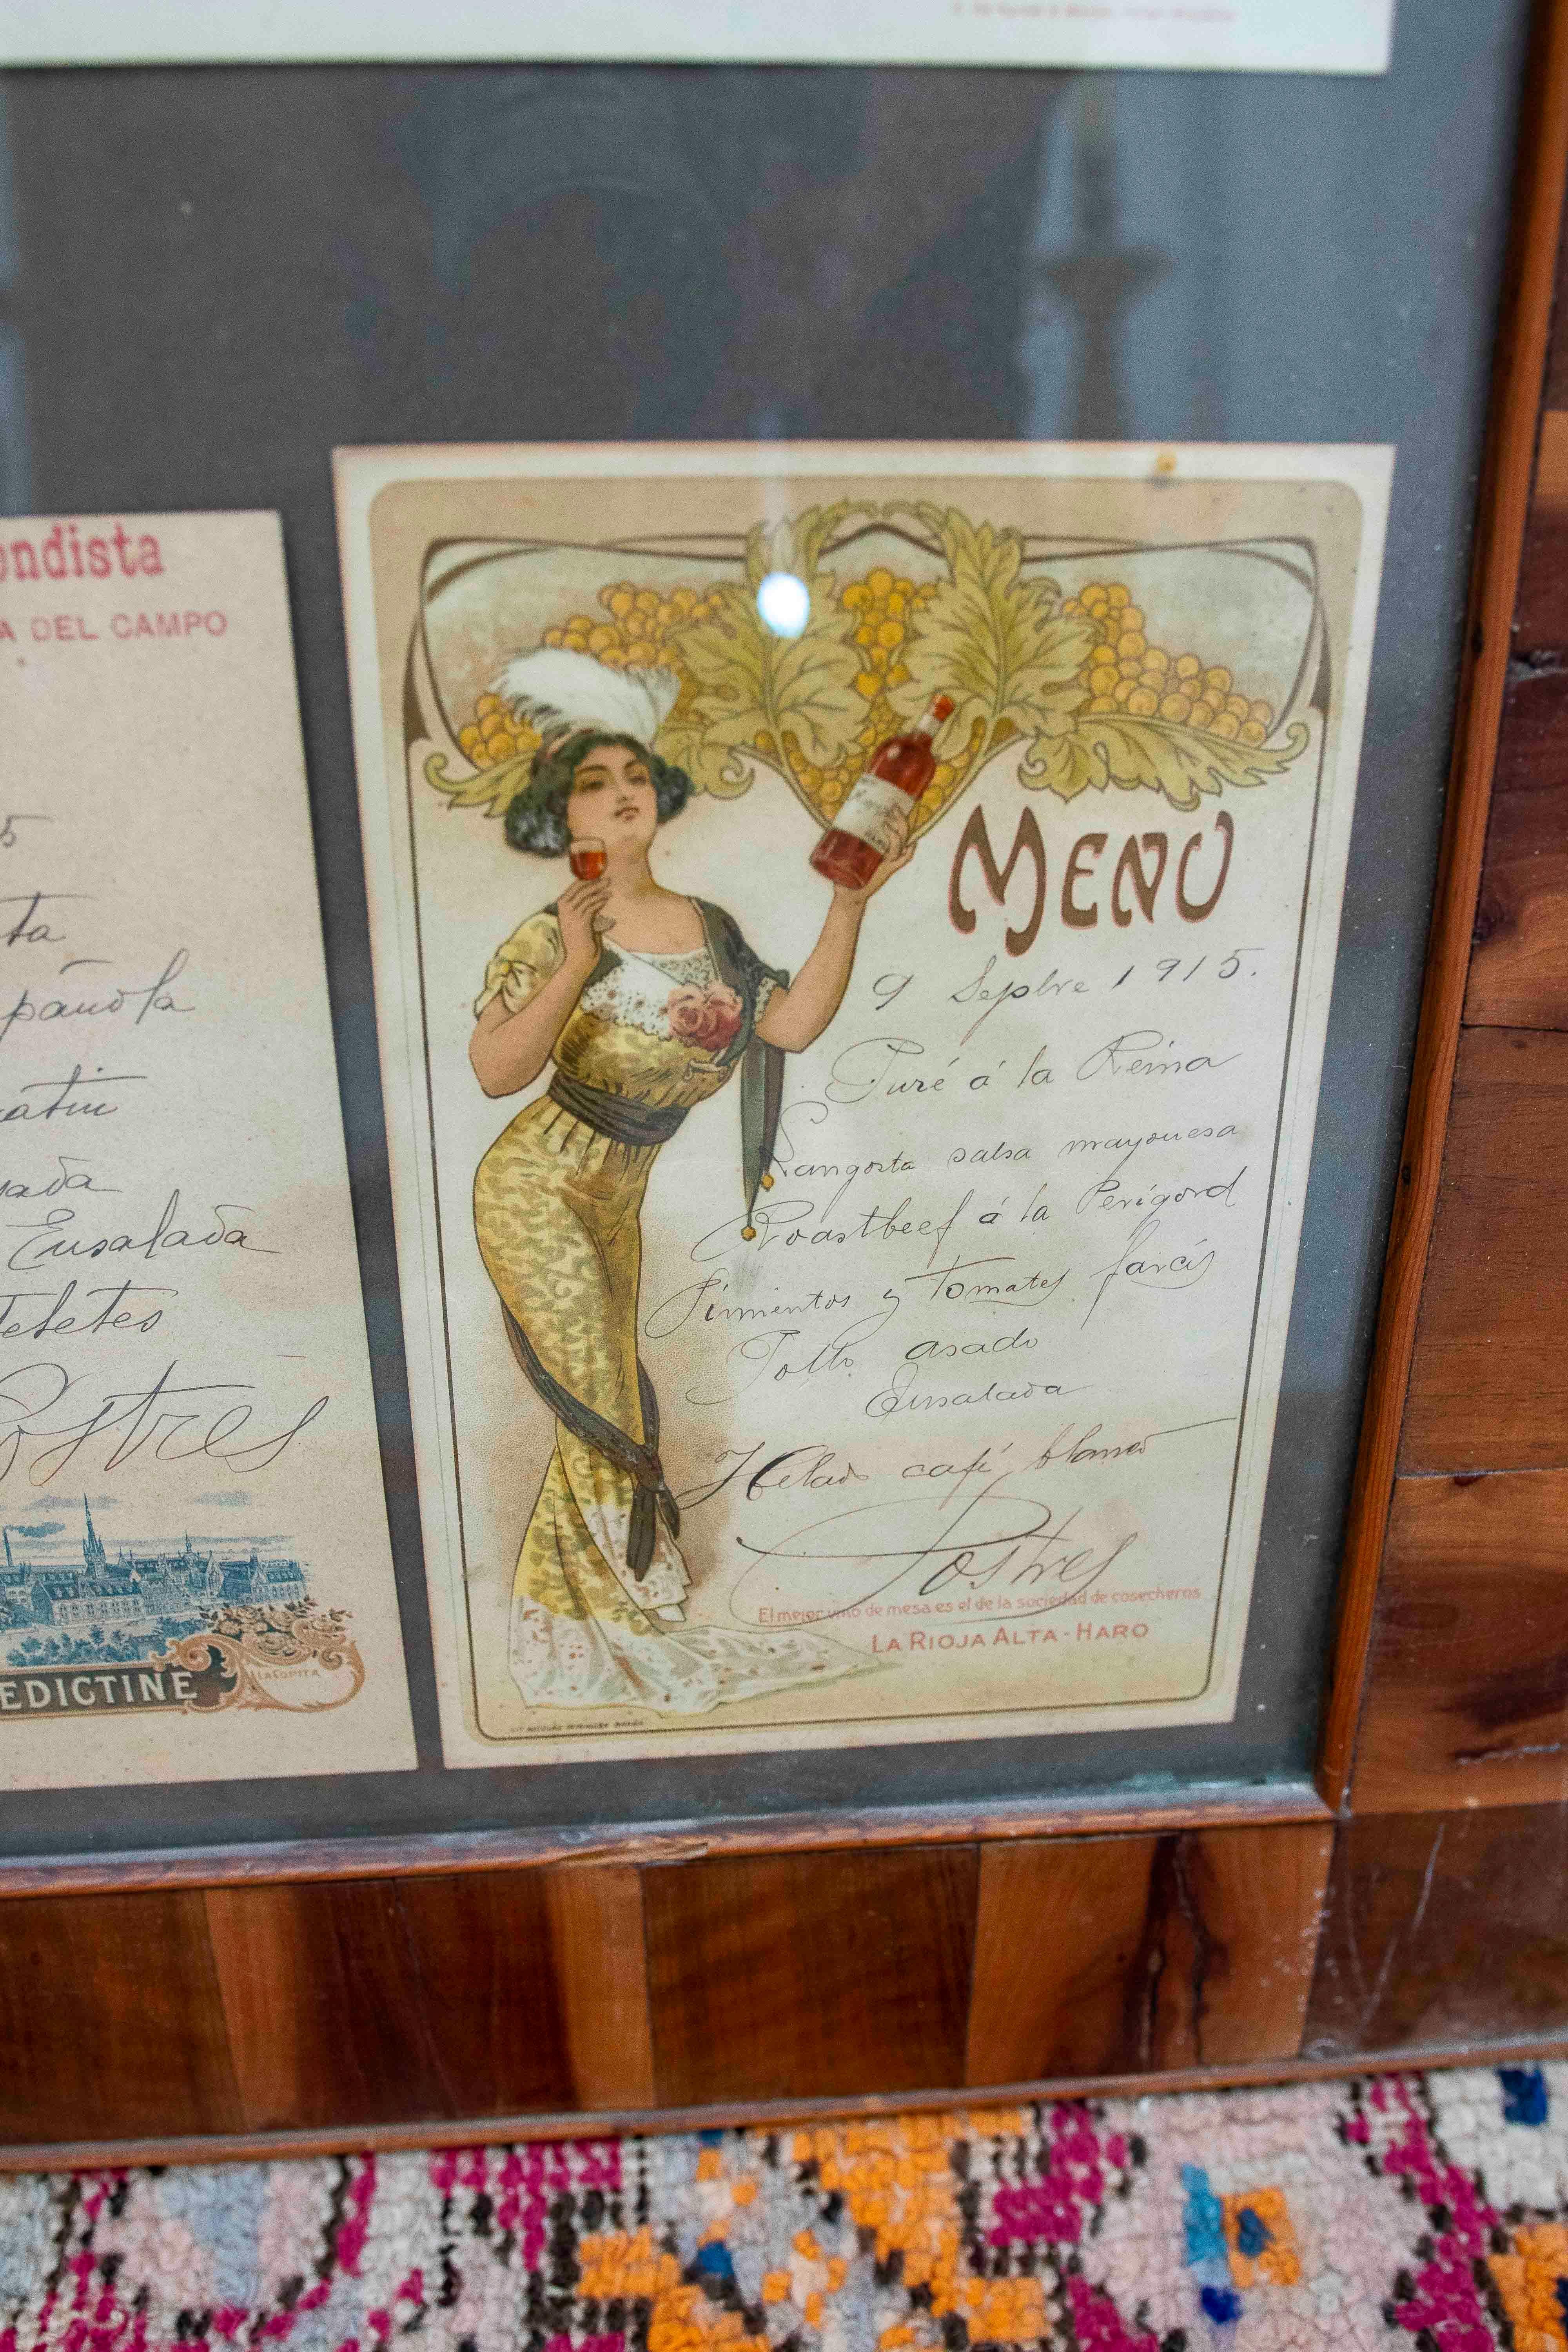 ondista
A DEL CAMPO
5
ta
pañola
atin
sada
Ensalada
Postres
EDICTINE
LA COPITA
MENU
9 Sepbre 1915.
Puré á la Reina
Langosta salsa mayonesa
Roastbeef á la Perigord
Pimientos y Tomates farcis
Pollo asado
Ensalada
Helado café blanco
Postres
El mejor vino de mesa es el de la sociedad de cosecheros
LA RIOJA ALTA-HARO